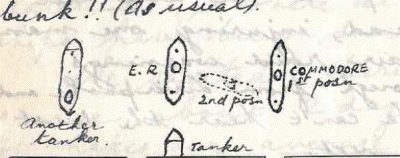 bunk!! (As usual).
E.R
COMMODORE
1st posn
2nd posn
Another
tanker.
Tanker